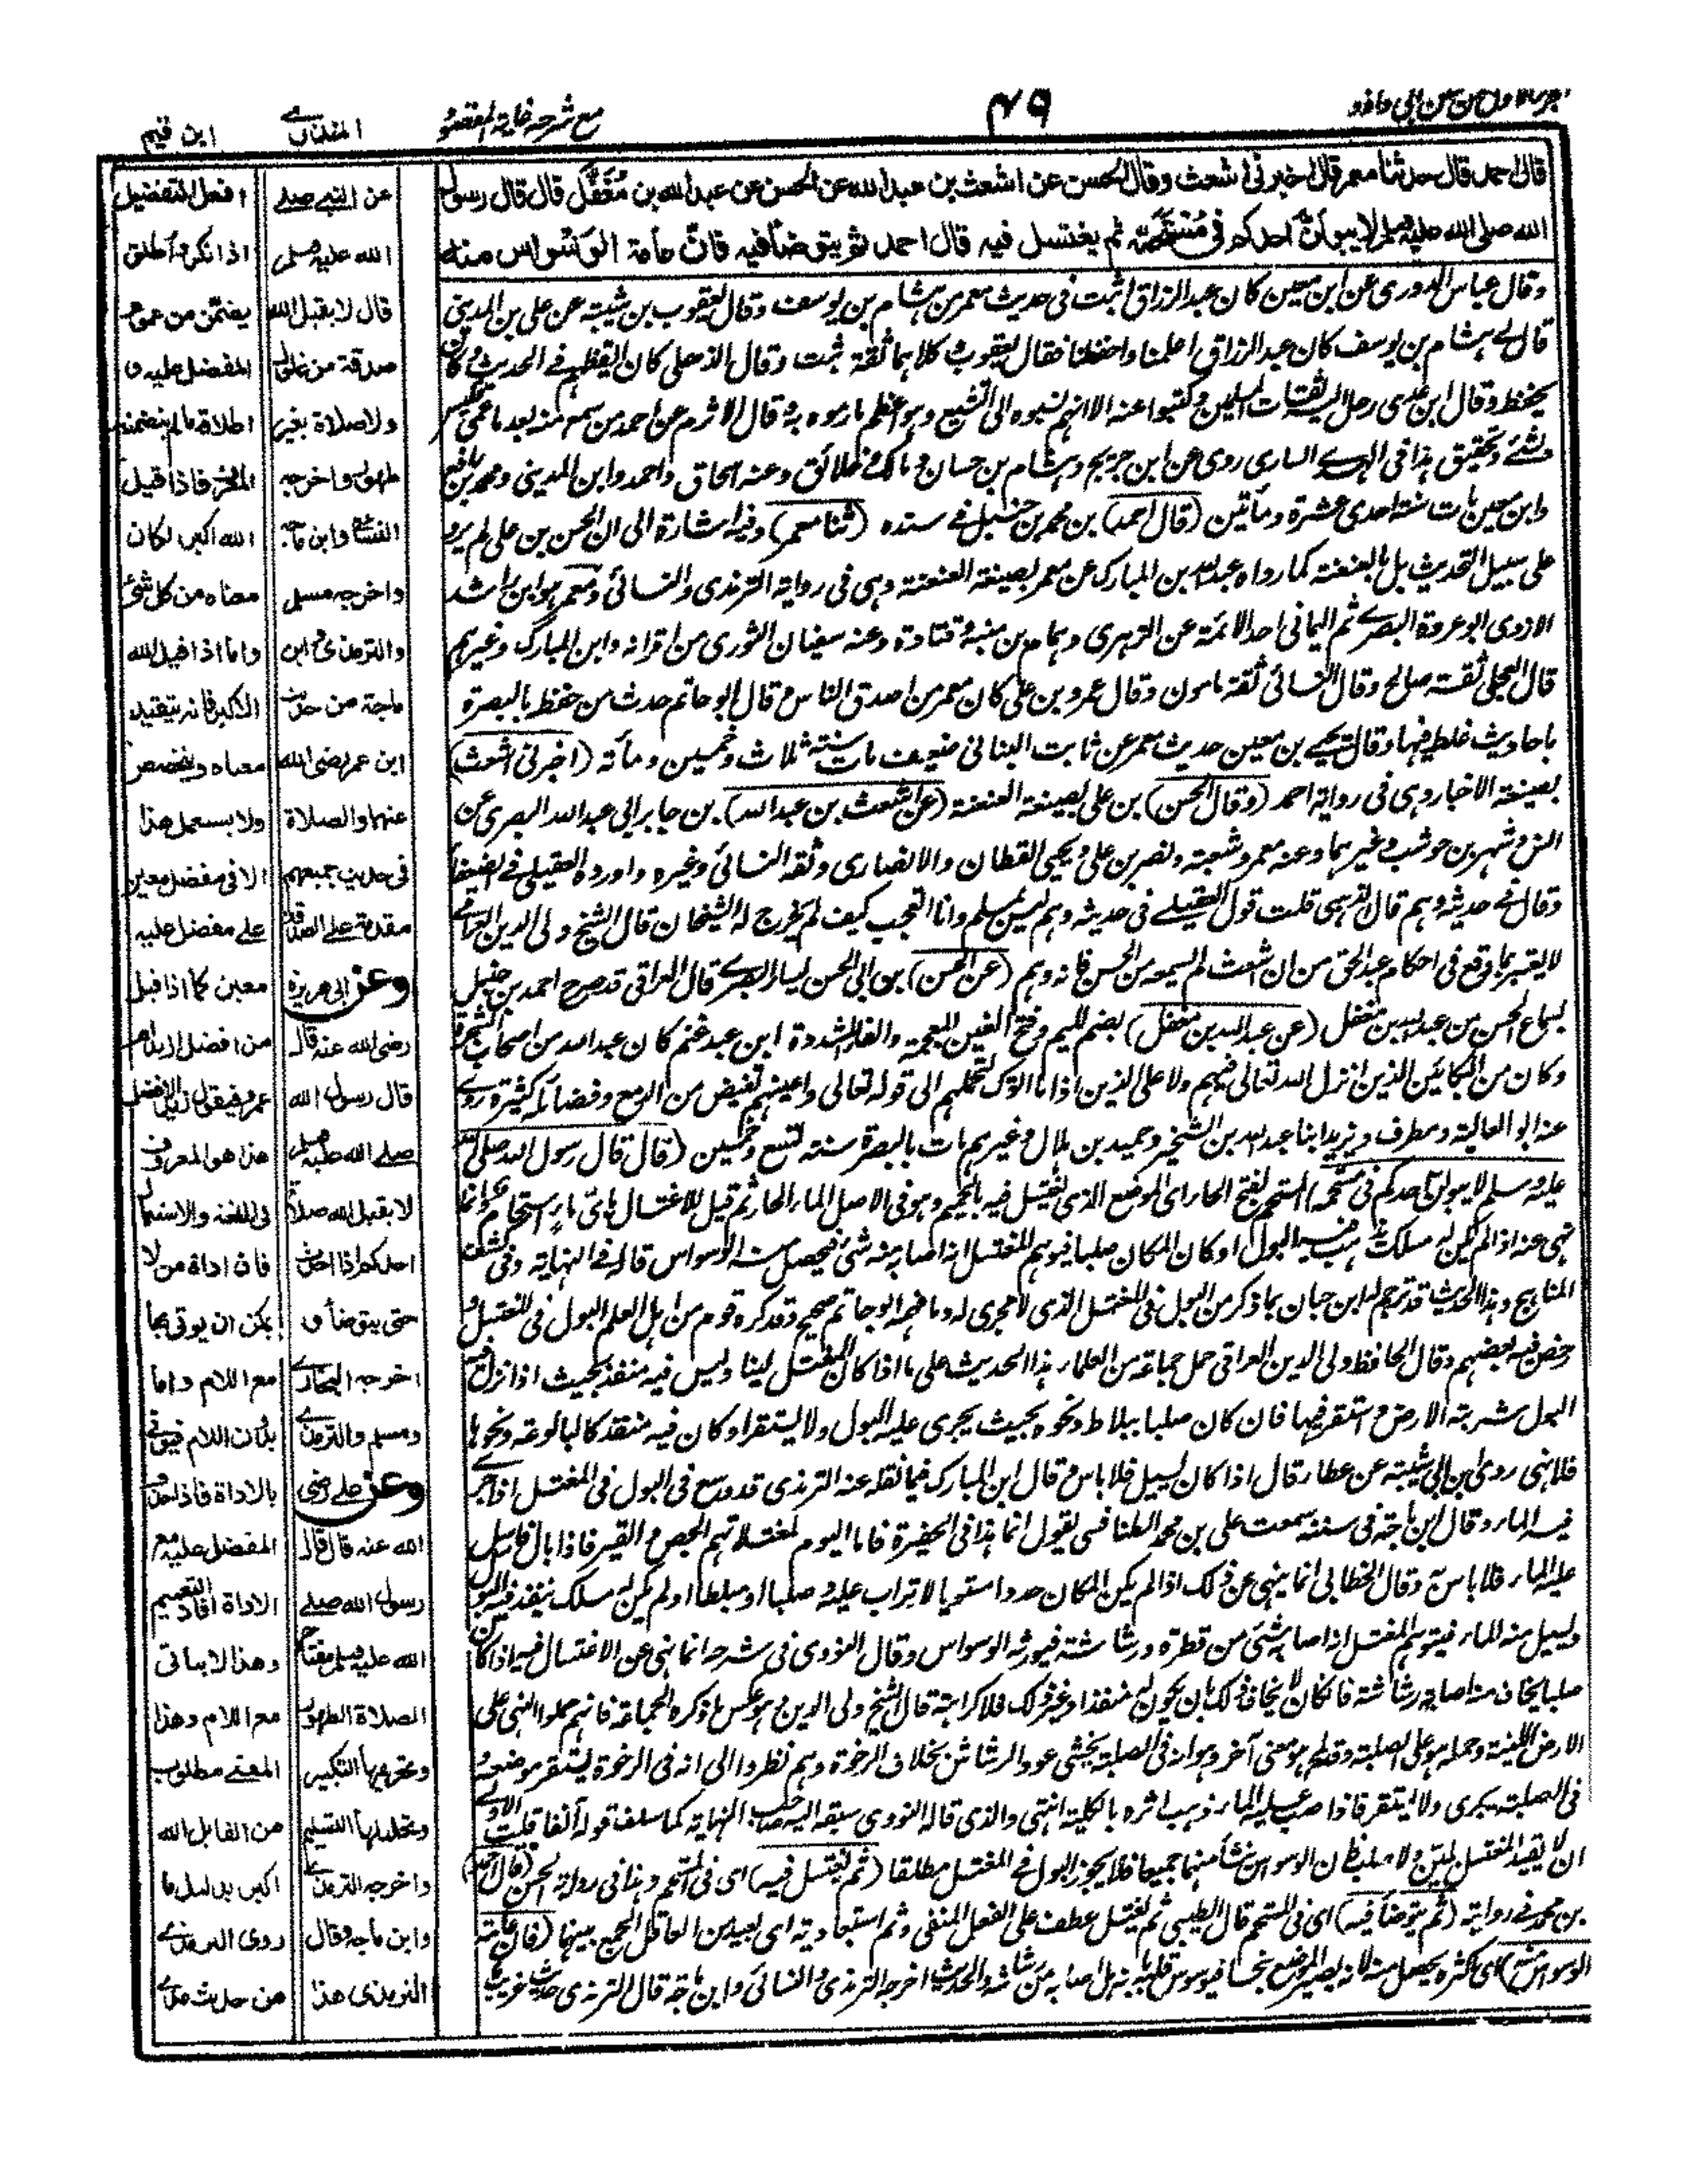 الجزء الاول من سنن ابى داود
٤٩
مع شرحه غاية المقصود
المنذري
ابن قيم
قال احمد قال حدثنا معمر قال اخبرنى اشعث وقال الحسن عن اشعث بن عبد الله عن الحسن عن عبد الله بن مُغَفَّل قال قال رسول
الله صلى الله عليه وسلم لا يبولنَّ احدكم فى مُسْتَحَمِّه ثم يغتسل فيه قال احمد ثم يتوضأ فيه فان عامة الوسواس منه
وقال عباس الدورى عن ابن معين كان عبد الرزاق اثبت فى حديث معمر من هشام بن يوسف وقال يعقوب بن شيبة عن على بن المدينى
قال لى هشام بن يوسف كان عبد الرزاق اعلمنا واحفظنا فقال يعقوب كلاهما ثقة ثبت وقال الذهلى كان ايقظهم فى الحديث وكان
يحفظ وقال ابن عدى رحل اليه ثقات المسلمين وكتبوا عنه الا انهم نسبوه الى التشيع وهو اعظم ما رموه به وقال الاثرم عن احمد من سمع منه بعد ما عمى فليس
بشئ وتحقيق هذا فى الهدى السارى روى عن ابن جريج وهشام بن حسان ومالك وخلائق وعنه اسحاق واحمد وابن المدينى ومحمد بن رافع
وابن معين مات سنة احدى عشرة ومأتين (قال احمد) بن محمد بن حنبل فى سنده (ثنا معمر) وفيه اشارة الى ان الحسن بن على لم يرو
على سبيل التحديث بل بالعنعنة كما رواه عبد الله بن المبارك عن معمر بصيغة العنعنة وهى فى رواية الترمذى والنسائى ومعمر هو ابن راشد
الازدى ابو عروة البصرى ثم اليمانى احد الائمة عن الزهرى وهمام بن منبه وقتادة وعنه سفيان الثورى من اقرانه وابن المبارك وغيرهم
قال العجلى ثقة صالح وقال النسائى ثقة مامون وقال عمرو بن على كان معمر من اصدق الناس وقال ابو حاتم حدث من حفظه بالبصرة
باحاديث غلط فيها وقال يحيى بن معين حديث معمر عن ثابت البنانى ضعيف مات سنة ثلاث وخمسين ومأتة (اخبرنى اشعث)
بصيغة الاخبار وهى فى رواية احمد (وقال الحسن) بن على بصيغة العنعنة (عن اشعث بن عبد الله) بن جابر ابى عبد الله البصرى عن
انس وشهر بن حوشب وغيرهما وعنه معمر وشعبة ونصر بن على ويحيى القطان والانصارى وثقه النسائى وغيره واورده العقيلى فى الضعفا
وقال فى حديثه وهم قال الذهبى قلت قول العقيلى فى حديثه وهم ليس بمسلم وانا اتعجب كيف لم يخرج له الشيخان قال الشيخ ولى الدين العراقى
لا يغتر بما وقع فى احكام عبد الحق من ان اشعث لم يسمعه من الحسن فانه وهم (عن الحسن) بن ابى الحسن يسار البصرى قال العراقى قد صرح احمد بن حنبل
بسماع الحسن من عبد الله بن مغفل (عن عبد الله بن مغفل) بضم الميم وفتح الغين المعجمة والفاء المشددة ابن عبد غنم كان عبد الله من اصحاب الشجرة
وكان من البكائين الذين انزل الله تعالى فيهم ولا على الذين اذا ما اتوك لتحملهم الى قوله تعالى واعينهم تفيض من الدمع وفضائله كثيرة روى
عنه ابو العالية ومطرف ويزيد ابنا عبد الله بن الشخير وحميد بن هلال وغيرهم مات بالبصرة سنة تسع وخمسين (قال قال رسول الله صلى الله
عليه وسلم لا يبولن احدكم فى مستحمه) المستحم بفتح الحاء اى الموضع الذى يغتسل فيه بالحميم وهو فى الاصل الماء الحار ثم قيل للاغتسال باى ماء استحمام وانما
نهى عنه اذا لم يكن له مسلك يذهب فيه البول او كان المكان صلبا فيوهم المغتسل انه اصابه منه شئ فيحصل منه الوسواس قاله فى النهاية وفى كشف
المناهج وهذا الحديث قد ترجم له ابن حبان بما ذكر من البول فى المغتسل الذى لا مجرى له وما فهمه ابو حاتم صحيح وقد كره قوم من اهل العلم البول فى المغتسل و
رخص فيه بعضهم وقال الحافظ ولى الدين العراقى حمل جماعة من العلماء هذا الحديث على ما اذا كان المغتسل لينا وليس فيه منفذ بحيث اذا نزل فيه
البول شربته الارض واستقر فيها فان كان صلبا ببلاط ونحوه بحيث يجرى عليه البول ولا يستقر او كان فيه منفذ كالبالوعة ونحوها
فلا نهى روى ابن ابى شيبة عن عطاء قال اذا كان يسيل فلا باس وقال ابن المبارك فيما نقله عنه الترمذى قد وسع فى البول فى المغتسل اذا جرى
فيه الماء وقال ابن ماجة فى سننه سمعت على بن محمد الطنافسى يقول انما هذا فى الحفيرة فاما اليوم لمغتسلاتهم الجص والقير فاذا بال فارسل
عليه الماء فلا باس به وقال الخطابى انما ينهى عن ذلك اذا لم يكن المكان جددا مستويا لا تراب عليه وصلبا او مبلطا او لم يكن له مسلك ينفذ فيه البول
ويسيل منه الماء فيتوهم المغتسل اذا اصابه شئ من قطره ورشاشته فيورثه الوسواس وقال النووى فى شرحه انما نهى عن الاغتسال فيه اذا كان
صلبا يخاف منه اصابة رشاشته فان كان لا يخاف ذلك بان يكون له منفذ او غير ذلك فلا كراهة قال الشيخ ولى الدين وهو عكس ما ذكره الجماعة فانهم حملوا النهى على
الارض اللينة وحمله هو على الصلبة وقد لمح هو معنى آخر وهو انه فى الصلبة يخشى عود الرشاش بخلاف الرخوة وهم نظروا الى انه فى الرخوة يستقر موضعه و
فى الصلبة يجرى ولا يستقر فاذا صب عليه الماء ذهب اثره بالكلية انتهى والذى قاله النووى سبقه اليه صاحب النهاية كما سلف قوله آنفا قلت الاولى
ان لا يقيد المغتسل بلين ولا صلب فان الوسواس ينشأ منهما جميعا فلا يجوز البول فى المغتسل مطلقا (ثم يغتسل فيه) اى فى المستحم وهذا فى رواية الحسن (قال احمد)
بن محمد فى روايته (ثم يتوضأ فيه) اى فى المستحم قال الطيبى ثم يغتسل عطف على الفعل المنفى وثم استبعادية اى بعيد من العاقل الجمع بينهما (فان عامة
الوسواس منه) اى اكثره يحصل منه لانه يصير الموضع نجسا فيوسوس قلبه بانه هل اصابه من رشاشه والحديث اخرجه الترمذى والنسائى وابن ماجة قال الترمذى حديث غريب
عن النبى صلى
الله عليه وسلم
قال لا يقبل الله
صدقة من غلول
ولا صلاة بغير
طهور واخرجه
النسائى وابن ماجه
واخرجه مسلم
والترمذى وابن
ماجة من حديث
ابن عمر رضى الله
عنهما والصلاة
فى حديث جميعهم
مقدمة على الصدقة
وعن ابى هريرة
رضى الله عنه قال
قال رسول الله
صلى الله عليه وسلم
لا يقبل الله صلاة
احدكم اذا احدث
حتى يتوضأ و
اخرجه البخارى
ومسلم والترمذى
وعن على رضى
الله عنه قال قال
رسول الله صلى
الله عليه وسلم مفتاح
الصلاة الطهور
وتحريمها التكبير
وتحليلها التسليم
واخرجه الترمذى
وابن ماجه وقال
الترمذى هذا
افعل التفضيل
اذا نكر واطلق
يضمن من عموم
المفضل عليه و
اطلاقه ما لم يتضمنه
المعرف فاذا قيل
الله اكبر كان
معناه من كل شئ
واما اذا قيل الله
الاكبر فانه يتقيد
معناه ويتخصص
ولا يستعمل هذا
الا فى مفضل معين
على مفضل عليه
معين كما اذا قيل
من افضل ازيد ام
عمرو فيقول زيد الافضل
هذا هو المعروف
فى اللغة والاستعمال
فان اداة من لا
يمكن ان يوتى بها
مع اللام واما
بدون اللام فيوتى
بالاداة فاذا حذف
المفضل عليه مع
الاداة افاد التعميم
وهذا لا يتاتى
مع اللام وهذا
المعنى مطلوب
من القائل الله
اكبر بدليل ما
روى الترمذى
من حديث عدى